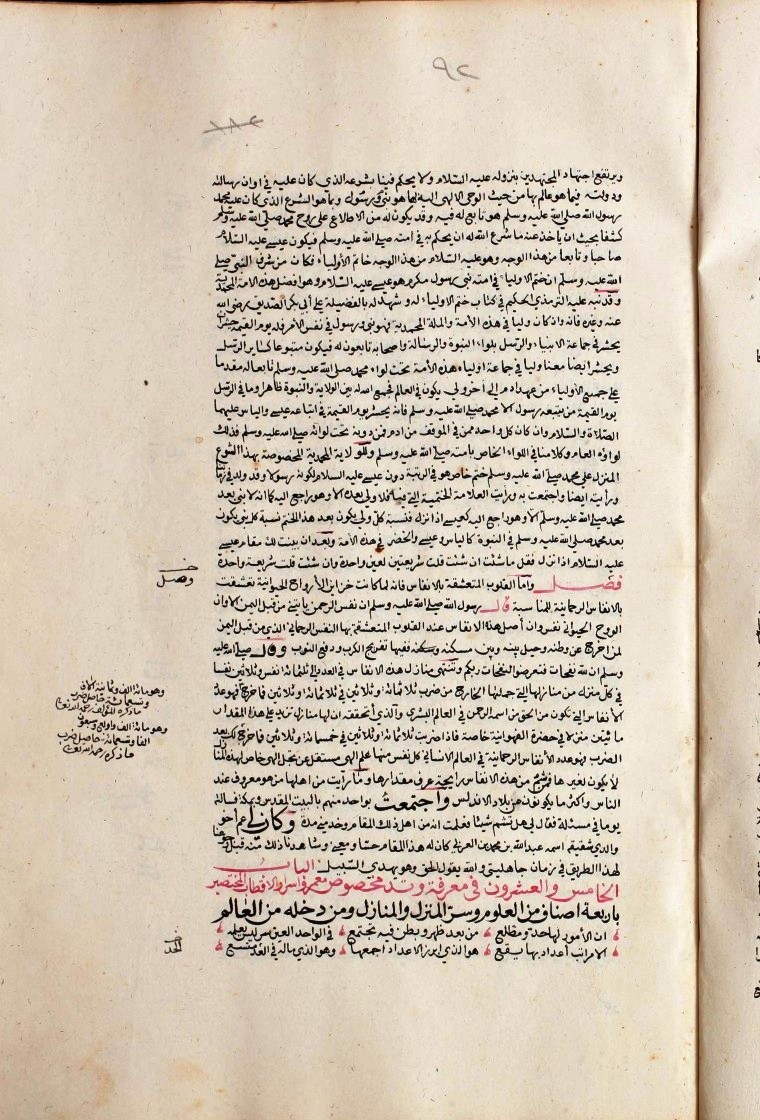 ٩٢
١٨٤
ويرتفع اجتهاد المجتهدين بنزوله عليه السلام ولا يحكم فينا بشرعه الذي كان عليه في اوان رسالته
ودولته فيما هو عالم بها من حيث الوحي الالهي اليه بها هو نبي ورسول وبما هو الشرع الذي كان عليه محمد
رسول الله صلى الله عليه وسلم هو تابع له فيه وقد يكون له من الاطلاع على روح محمد صلى الله عليه وسلم
كشفا بحيث ان ياخذ عنه ما شرع الله له ان يحكم به في امته صلى الله عليه وسلم فيكون عيسى عليه السلام
صاحبا وتابعا من هذا الوجه وهو عليه السلام من هذا الوجه خاتم الأولياء فكان من شرف النبي صلى
الله عليه وسلم ان ختم الاولياء في امته نبي رسول مكرم هو عيسى عليه السلام وهو افضل هذه الامة المحمدية
وقد نبه عليه الترمذي الحكيم في كتاب ختم الاولياء له وشهد له بالفضيلة على أبي بكر الصديق رضي الله
عنه وغيره فانه وان كان وليا في هذه الأمة والملة المحمدية فهو نبي ورسول في نفس الأمر فله يوم القيمة حشران
يحشر في جماعة الانبياء والرسل بلواء النبوة والرسالة واصحابه تابعون له فيكون متبوعا كساير الرسل
ويحشر ايضا معنا وليا في جماعة اولياء هذه الأمة تحت لواء محمد صلى الله عليه وسلم تابعا له مقدما
على جميع الأولياء من عهد ادم الى آخر ولي يكون في العالم فجمع الله له بين الولاية والنبوة ظاهرا وما في الرسل
يوم القيمة من يتبعه رسول الا محمد صلى الله عليه وسلم فانه يحشر يوم القيمة في اتباعه عيسى والياس عليهما
الصلاة والسلام وان كان كل واحد ممن في الموقف من ادم فمن دونه تحت لوائه صلى الله عليه وسلم فذلك
لواؤه العام وكلامنا في اللواء الخاص بامته صلى الله عليه وسلم وللولاية المحمدية المخصوصة بهذا الشرع
المنزل على محمد صلى الله عليه وسلم ختم خاص هو في الرتبة دون عيسى عليه السلام لكونه رسولا وقد ولد في زماننا
ورأيته ايضا واجتمعت به ورأيت العلامة الختمية التي فيه فلا ولي بعده الا وهو راجع اليه كما انه لا نبي بعد
محمد صلى الله عليه وسلم الا وهو راجع اليه كعيسى اذا نزل فنسبة كل ولي يكون بعد هذا الختم نسبة كل نبي يكون
بعد محمد صلى الله عليه وسلم في النبوة كالياس وعيسى والخضر في هذه الامة وبعد ان بينت لك مقام عيسى
عليه السلام اذا نزل فقل ما شئت ان شئت قلت شريعتين لعين واحدة وان شئت قلت شريعة واحدة
فصل واما القلوب المتعشقة بالانفاس فانه لما كانت خزاين الأرواح الحيوانية تعشقت
بالانفاس الرحمانية للمناسبة قال رسول الله صلى الله عليه وسلم ان نفس الرحمن يأتيني من قبل اليمن الا وان
الروح الحيواني نفس وان أصل هذه الانفاس عند القلوب المتعشقة بها النفس الرحماني الذي من قبل اليمن
لمن اخرج عن وطنه وحيل بينه وبين مسكنه وسكنه ففيها تفريج الكرب ودفع النوب وقال صلى الله عليه
وسلم ان لله نفحات فتعرضوا لنفحات ربكم وتنتهي منازل هذه الانفاس في العدد الى ثلثمائة نفس وثلاثين نفسا
في كل منزل من منازلها التي جملتها الخارج من ضرب ثلثمائة وثلاثين في ثلاثمائة وثلاثين فما خرج فهو عدد
الأنفاس التي تكون من الحق من اسمه الرحمن في العالم البشري والذي اتحققه ان لها منازل تزيد على هذا المقدار
مائتين منزلا في حضرة الفهوانية خاصة فاذا ضربت ثلاثمائة وثلاثين في خمسمائة وثلاثين فما خرج لك بعد
الضرب فهو عدد الأنفاس الرحمانية في العالم الانساني كل نفس منها علم الهي مستقل عن تجل الهي خاص لهذه المنازل
لا يكون لغيرها فمن شم من هذه الانفاس رايحة عرف مقدارها وما رأيت من اهلها من هو معروف عند
الناس واكثر ما يكونون من بلاد الاندلس واجتمعت بواحد منهم بالبيت المقدس وبمكة فسالته
يوما في مسئلة فقال لي هل تشم شيئا فعلمت انه من اهل ذلك المقام وخدمني مدة وكان لي عم اخو
والدي شقيقه اسمه عبدالله بن محمد بن العربي كان له هذا المقام حسا ومعنى وشاهدنا ذلك منه قبل رجوعنا
لهذا الطريق في زمان جاهليتي والله يقول الحق وهو يهدي السبيل الباب
الخامس والعشرون في معرفة وتد مخصوص معمر واسرار الاقطاب المختصين
باربعة اصناف من العلوم وسر المنزل والمنازل ومن دخله من العالم
ان الأمور لها حد ومطلع من بعد ظهر وبطن فيه تجتمع
في الواحد العين سر ليس يعلمه الا مراتب أعداد بها يقع
هو الذي ابرز الاعداد اجمعها وهو الذي ماله في العد متسع
خـ
وصل
وهو مائة الف وثمانية آلاف
وتسعمائة حاصل ضرب
ما ذكره المؤلف رحمه الله تعالى
وهو مائة الف واربعة وسبعون
الفا وتسعمائة حاصل ضرب
ما ذكره رحمه الله تعالى